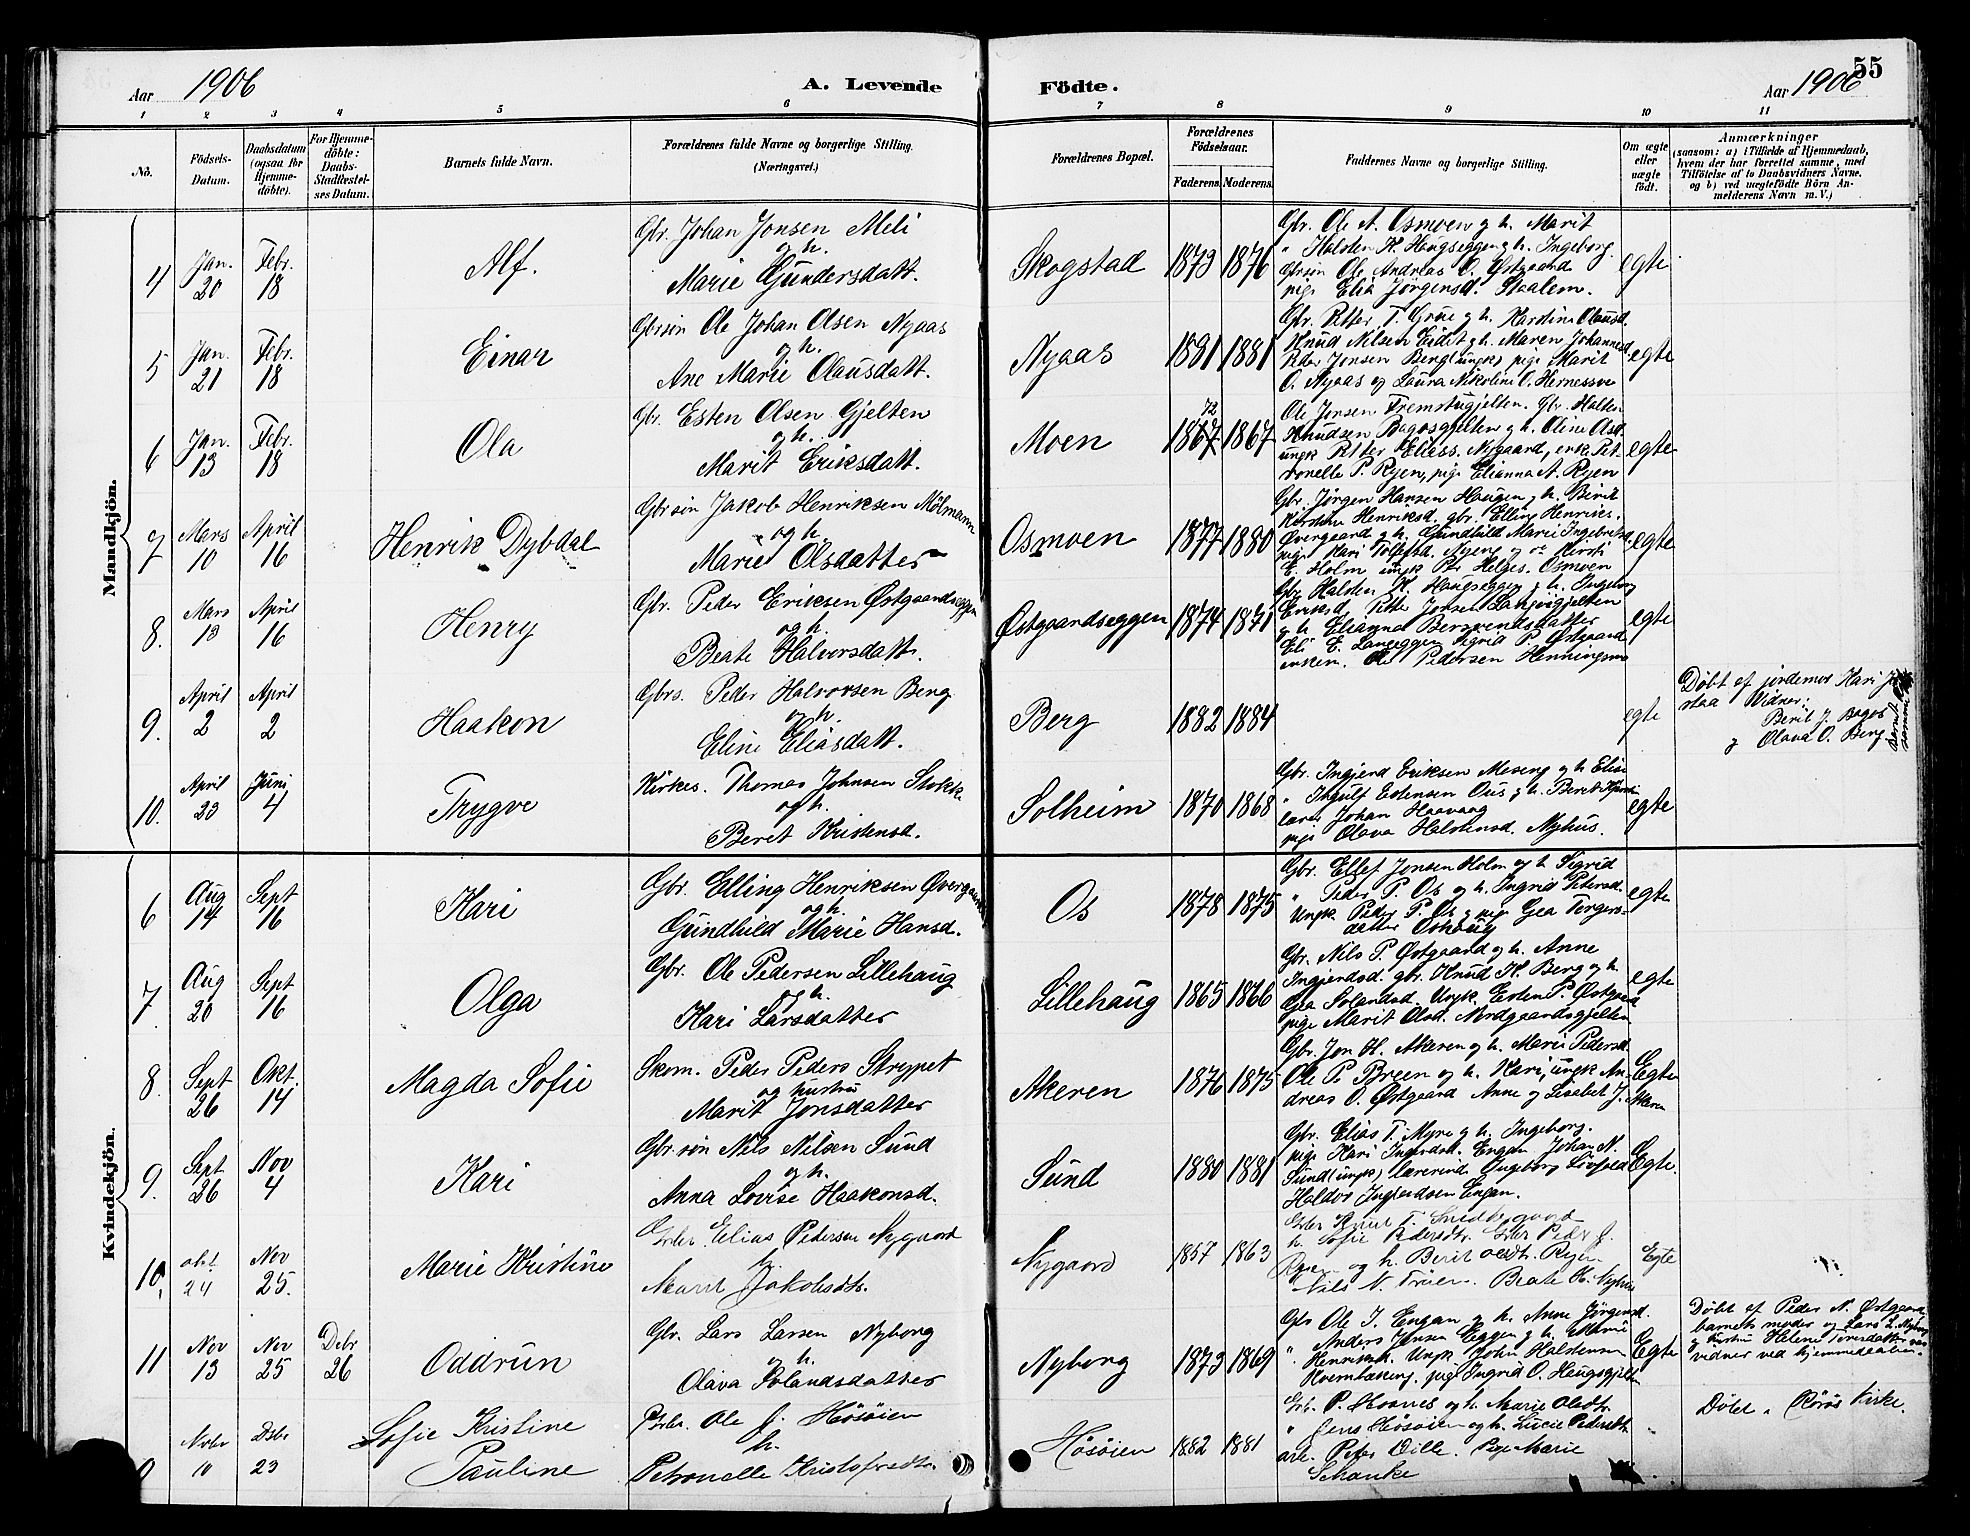 Aar 1906 A. Levende Födte. Aar 1906 55
1 2 3 4 5 6 7 8 9 10 11
No.
Födsels-Datum.
Daabsdatum (ogsaa for Hjemme-döbte).
For Hjemme-döbte: Daabs-Stadfæstel-ses Datum.
Barnets fulde Navn.
Forældrenes fulde Navne og borgerlige Stilling. (Næringsvei.)
Forældrenes Bopæl.
Forældrenes Födselsaar.
Faderens. Moderens.
Faddernes Navne og borgerlige Stilling.
Om ægte eller uægte födt.
Anmærkninger
(saasom: a) i Tilfælde af Hjemmedaab,
hvem der har forrettet samme, med
Tilföielse af to Daabsvidners Navne,
og b) ved uægtefödte Börn An-
melderens Navn m. V.)
Mandkjön.
4 Jan. 20 Febr. 18 Alf.
Gbr. Johan Jonsen Meli
og h.
Marie Gundersdatt.
Skogstad 1873 1876
Gbr. Ole A. Osmoen og h. Marit
" Halsten K. Haugseggen og h. Ingeborg
Gbrsøn Ole Andreas O. Østgaard
pige Elia Jørgensd. Staalem.
egte
5 Jan. 21 Febr. 18 Einar
Gbrsøn Ole Johan Olsen Nyaas
og h.
Ane Marie Olausdatt.
Nyaas 1881 1881
Gbr. Petter T. Grue og h. Hardine Olausd.
Knud Nilsen Eidet og h. Maren Johannesd.
Peder Jonsen Berg (ungk) pige Marit
O. Nyaas og Laura Nikoline O. Hernessve
egte
6 Jan. 13 Febr. 18 Ola
Gbr. Esten Olsen Gjelten
og h.
Marit Eriksdatt.
Moen 1867 72 1867
Ole Jonsen Fremstugjelten. Gbr. Halten
Knudsen Bagosgjelten og h. Oline Olsd.
ungk Petter Eliass. Nygaard, enke Pet-
ronelle P. Ryen, pige Elianna A. Ryen
egte
7 Mars 10 April 16 Henrik Dybdal
Gbrsøn Jakob Henriksen Mølmann
og h.
Marie Olsdatter
Osmoen 1877 1880
Gbr. Jørgen Hansen Haugen og h. Berit
Kirstine Henriksd. gbr. Elling Henriks.
Øvergaard og h. Gundhild Marie Ingebretsd.
pige Kari Tollefsd. Nyeng og Kersti
E. Holm ungk Per Helges. Osmoen
egte
8. Mars 13 April 16 Henry
Gbr. Peder Eriksen Østgaardseggen
og h.
Beate Halvorsdatt.
Østgaardseggen 1874 1871
Gbr Halsten K. Haugseggen og h. Ingeborg
Eriksd. Petter Jonsen Langøigjelten
og h. Elianna Bersvendsdatter
Eli E. Langeggen Sigrid P. Østgaard
enkem. Ole Pedersen Henningmo
egte
9. April 2 April 2 Haakon
Gbrs. Peder Halvorsen Berg
og h.
Eline Eliasdatt.
Berg 1882 1884
egte
Døbt af jordemor Kari J.
staa Vidner:
Berit J. Bagos
og Olava O. Berg
10. April 23 Juni 4 Trygve
Kirkes. Thomas Johnsen Stokke
og h.
Beret Kristensd.
Solheim 1870 1868
Gbr. Ingjerd Eriksen Moseng og h. Elise
" Ingulf Estensen Ous og h. Berit
lærer Johan Haavang
pige Olava Halstensd. Nyhus.
egte
Kvindekjön.
6 Aug 14 Sept 16 Kari
Gbr. Elling Henriksen Øvergaard
og h.
Gundhild Marie Hansd.
Os 1878 1875
Gbr. Ellef Jonsen Holm og h. Sigrid
" Peder P. Os og h. Ingrid Petersd.
Ungk. Peder P. Os og pige Gea Torgers-
datter Oshaug
egte
7 Aug 20 Sept 16 Olga
Gbr. Ole Pedersen Lillehaug
og h.
Kari Larsdatter
Lillehaug 1865 1866
Gbr. Nils P. Østgaard og h. Anne
Ingjerdsd. gbr. Knud K. Berg og h.
Gea Solandsd. Ungk. Esten P. Østgaard
pige Marit Olsd. Nordgaardsgjelten
egte
8 Sept 26 Okt. 14 Magda Sofie
Skom. Peder Peders Strypet
og hustru
Marit Jonsdatter
Akeren 1876 1875
Gbr. Jon H. Akeren og h. Marie Pedersd.
Ole P. Breen og h. Kari, ungk An-
dreas O. Østgaard Anne og Lisabet J. Akeren
Egte
9. Sept 26 Nov 4 Kari
Gbr. søn Nils Nilsen Sund
og h.
Anna Lovise Haakonsd.
Sund 1880 1881
Gbr. Elias T. Myre og h. Ingeborg.
pige Kari Ingerdsd. Engan Johan N.
Sund (ungk) lærerinde Ingeborg Løvfald
Haldor Ingjerdsen Engan.
Egte.
10, okt 24 Nov 25. Marie Kristine
Gbr. Elias Pedersen Nygaard
h.
Marit Jakobsdtr.
Nygaard 1857 1863
Gbr Knut T. Smedsgaard
h. Sofie Pedersdtr. Gbr Peder J.
Ryen og h. Berit Olsdtr. Ryen
Nils N. Trøen. Beate H. Nyhus
Egte
11 Nov 13 Nov 25 Debr 26 Oddrun
Gbr. Lars Larsen Nyborg
og h.
Olava Solandsdatter
Nyborg 1873 1869
Gbr Ole I. Engan og h. Anne Jørgensd.
" Anders Jonsen Eggen og h. Marie
Henriksd. Ungk John Halstensen
Kvernbækeng, pige Ingrid O. Haugsgjelten
Egte
Døbt af Peder N. Østgaard,
barnets moder og Lars L. Nyborg
og hustru Helene Toresdatter var
vidner ved hjemmedaaben.
Nvbr 10 Dsbr 23 Sofie Kristine
Pauline
Gbr. Ole J. Høsøien
h.
Petronelle Kristofersdtr.
Høsøien 1882 1881
Gbr. P. Skoanes og h. Marie Olsdtr.
" Jens Høsøien og h. Lucie Pedersdtr.
arb. Peter Ville. Pige Marie
Schanke
"
Døbt i Røros Kirke.